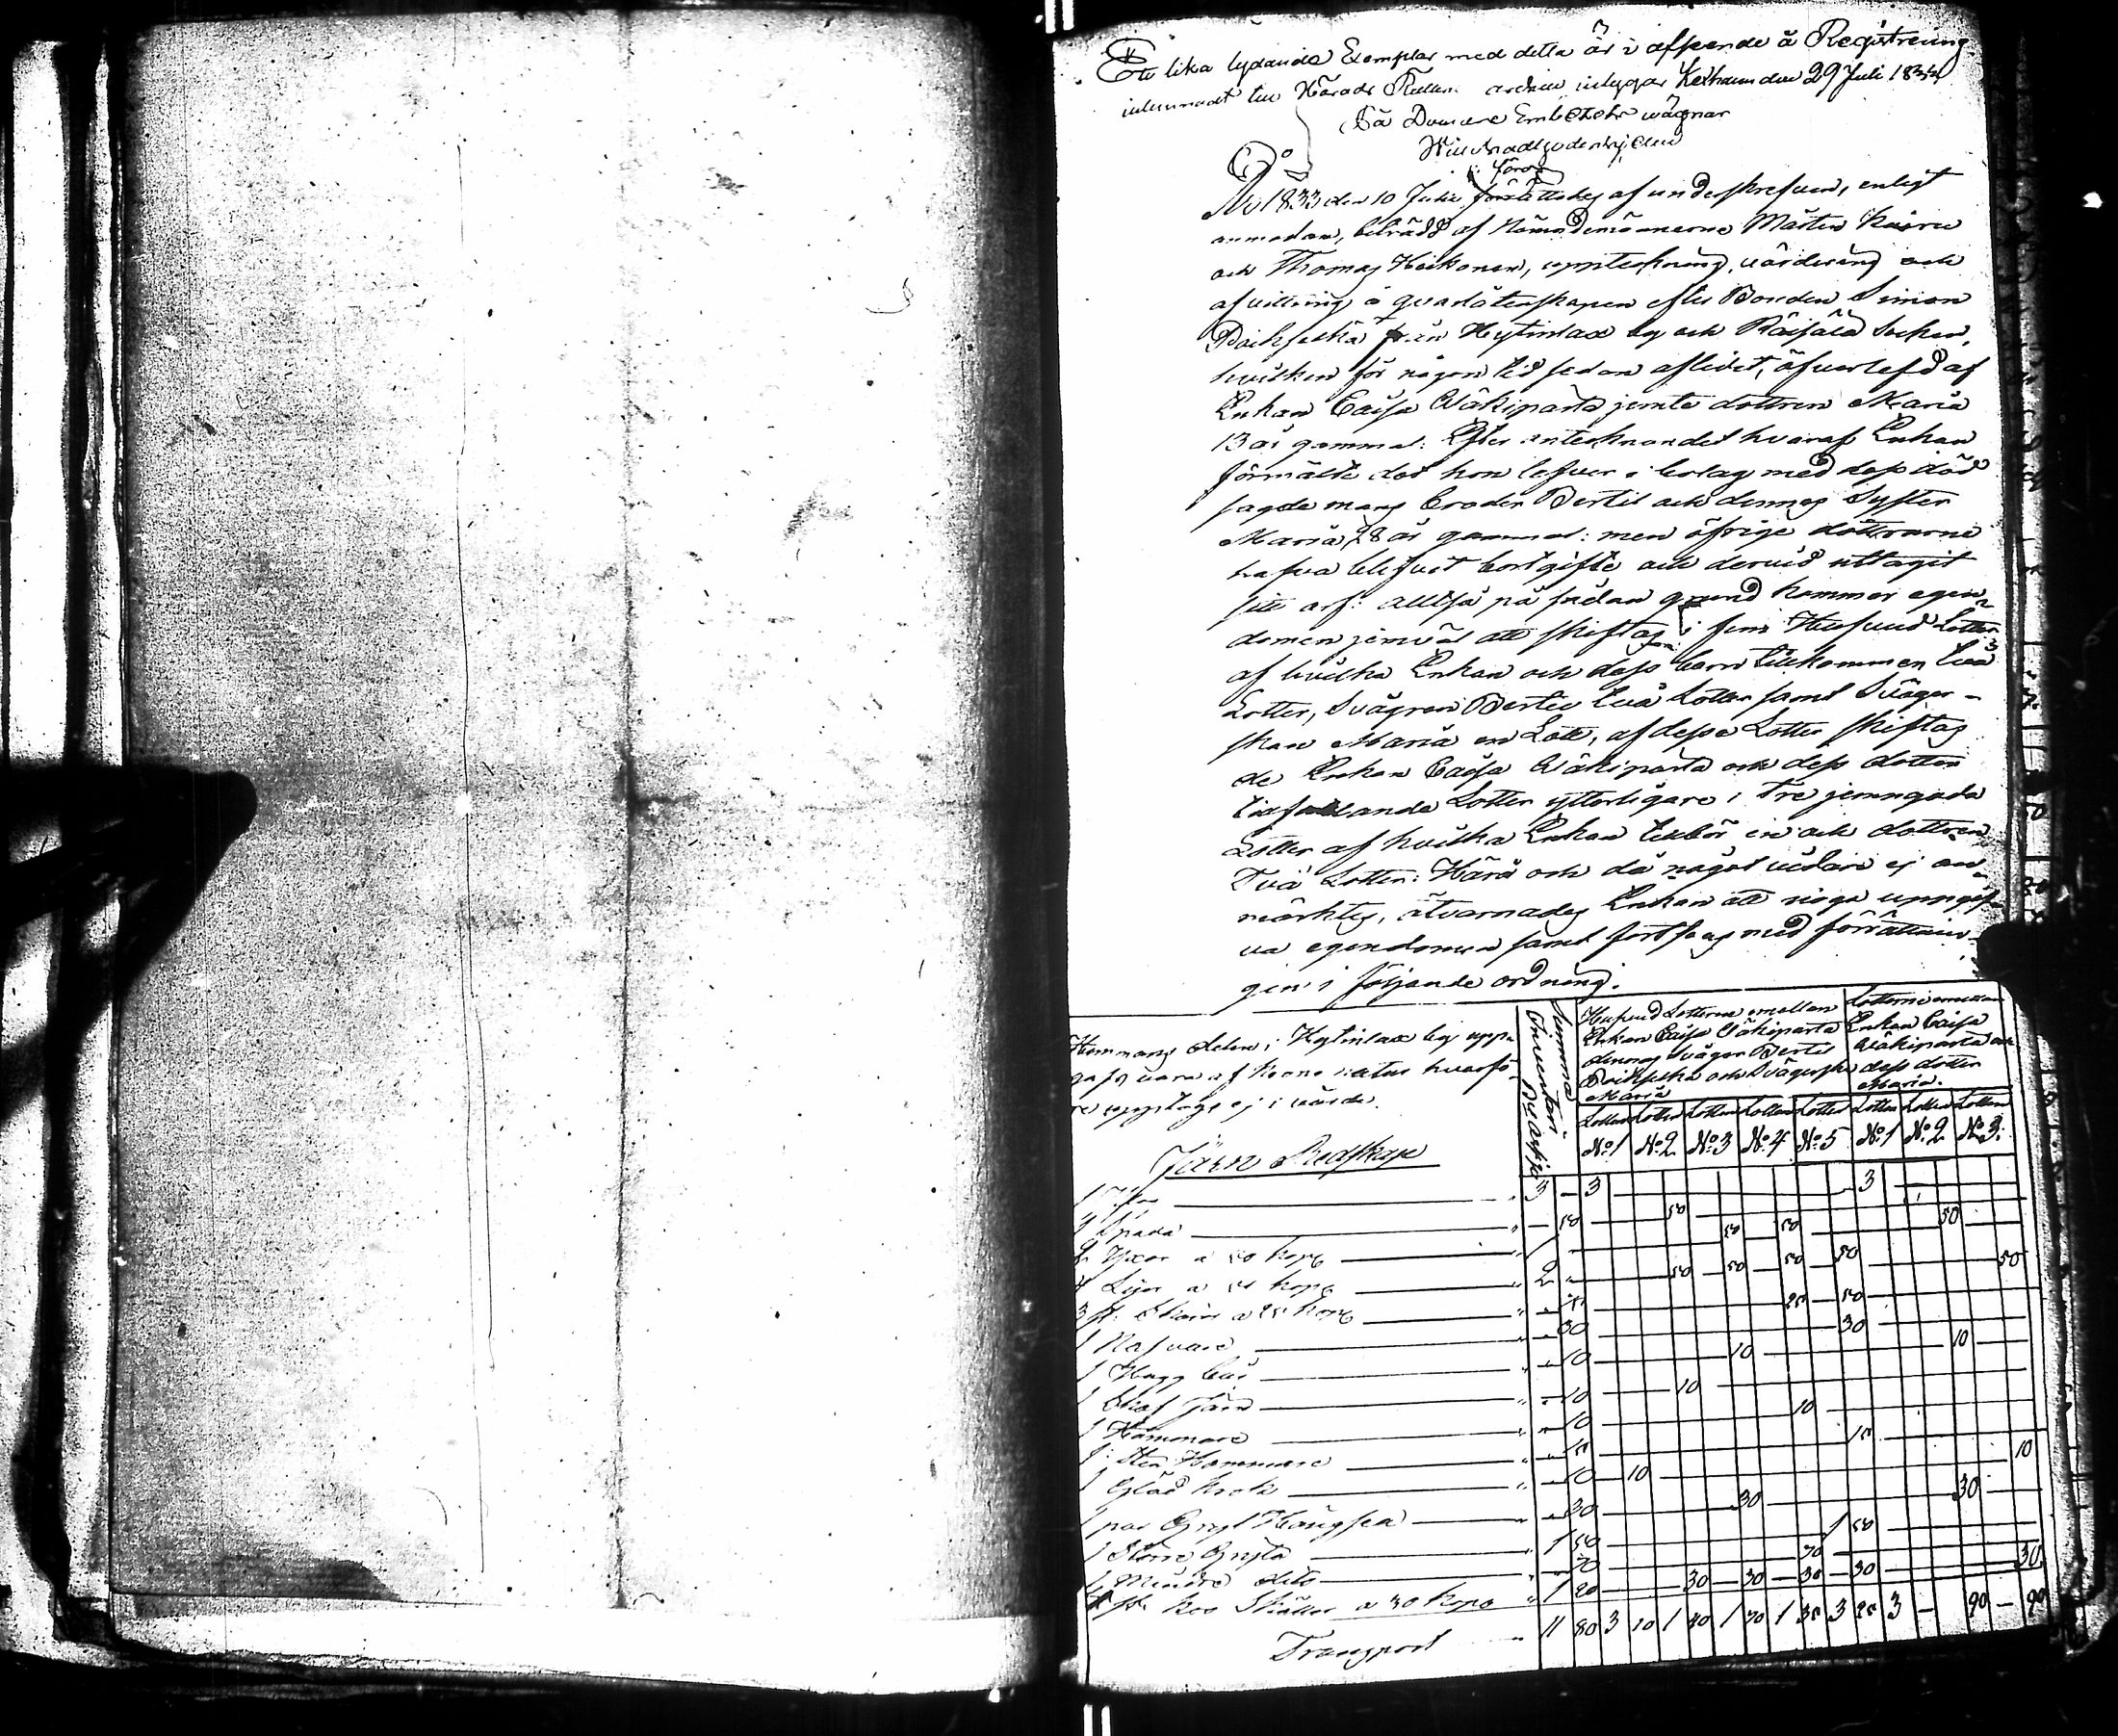 Ett lika lydande Exemplar med detta är i afseende å Registrering
inlemnadt till Härads Rättens archiv intygar Kexholm den 29 Juli 1834
På Domare Embetets wägnar
År 1833 den 10 Julii förrättades af undeskrefven, enligt
anmodan, biträdd af Nämndemännerne Mårten Kairu
och Thomas Heikonen, uppteckning, värdering och
afvittring å qvarlåtenskapen efter Bonden Simon
från Hytinlax by och Räisälä Socken,
hvilken för någon tid sedan aflidit, öfverlefd af
Enkan Caisa Wäkiparta jemte dottren Maria
13 år gammal: Efter antecknandet hvaraf Enkan
förmälte det hon lefver i bolag med dess död
sagde mans broder Bertil och dennes Syster
Maria, 28 år gammal: men öfrige döttrarne
hafva blifvit bortgifte och dervid uttagit
sitt arf: alltså på sådan grund kommer egen
domen jemväl att skiftas i fem Hufvud Lotter
af hvilka Enkan och dess barn tillkommer två
Lotter, Svågren Bertil två Lotter samt Svåger-
skan Maria en Lott, af dessa Lotter skiftas
de Enkan Caisa Wäkiparta och dess dotter
tillfallande Lotter ytterligare i Tre jemngoda
Lotter af hvilka Enkan tillhör en och dottren
Två Lotter: Härå och då något vidare ej an
märktes, åtvarnades Enkan att noga uppgif-
va egendomen samt fortsays med förrättnin-
gen i följande ordning.
Hemmans delen i Hytinlax by upp-
gafs vara af Krono natur hvarfö-
re upptages ej i värde.
Summa Inventarii
Hufvud Lotterne emellan
Enkan Caisa Wäkiparta
dennes Svåger Bertil
och Svägerska
Maria
Lotterne emellan
Enkan Caisa
Wäkiparta och
dess dotter
Maria.
Lotten Lotten Lotten Lotten Lotten Lotten Lotten Lotten
No:1 No:2 No:3 No:4 No:5 No:1 No:2 No:3
Järn Redskap
1 3 – 3 3
1 Spada – 50 50 50
2 Yxor a 50 kop 1 – 50 50
4 Lijor a 50 kop 2 – 50 50 50 50 50
3 st. Skäror a 25 kop 25 50
1 Nafvare – 30 30
1 Hugg – 10 10 10
1 Skaf järn – 10 10
1 Hammare – 10 10
1 Sten Hammare
1 Glöd krok – 10 10 10
1 par – 30 30 30
1 Större Gryta 1 50 1 50
1 Mindre dito – 70 70
4 st. Koo Skällor a 30 kop 1 20 30 30 30 30 30
Transport 11 80 3 10 1 40 1 70 1 3 25 3 – 90 – 90